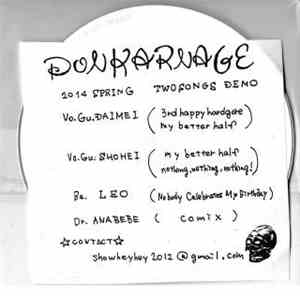 DONKARNAGE
2014 SPRING TWOSONGS DEMO
Vo.Gu.DAIMEI (3rd happy hardgate
my better half)
Vo.Gu.SHOHEI (my better half
nothing,nothing,nothing!)
Ba. LEO (Nobody Celebrates My Birthday)
Dr. ANABEBE ( comix )
☆CONTACT☆
showheyhey2012@gmail.com